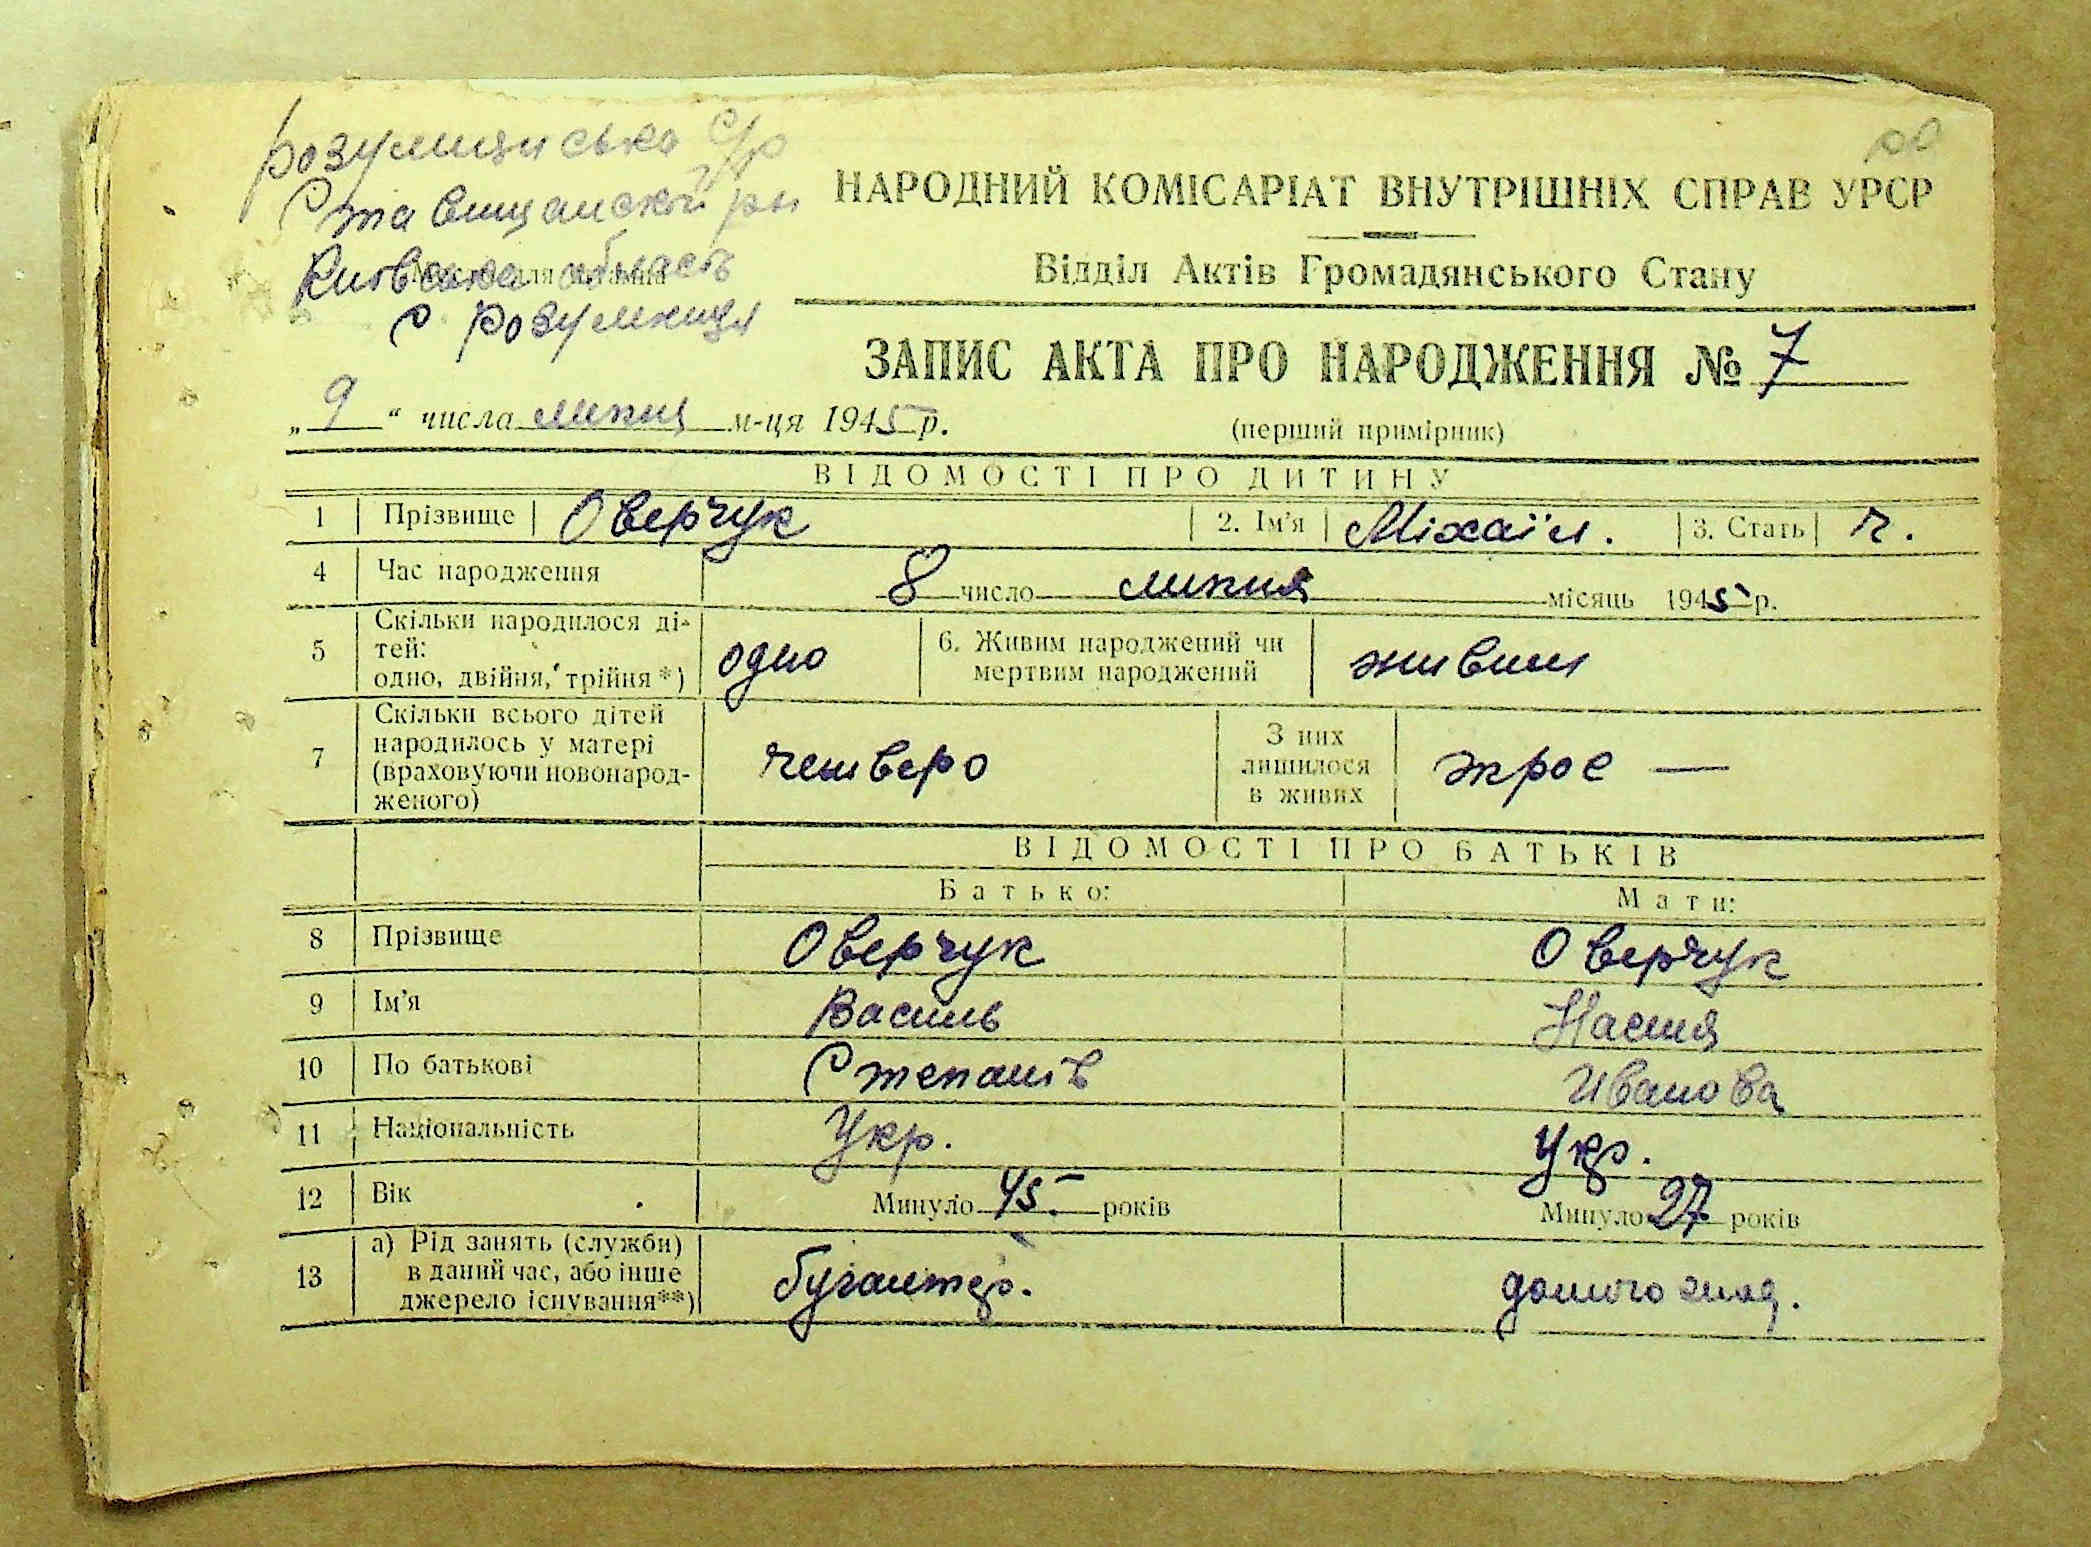 розумицська с/р
Ставищанской рн
Київська область
с Розумниця
НАРОДНИЙ КОМІСАРІАТ ВНУТРІШНІХ СПРАВ УРСР
Відділ Актів Громадянського Стану
ЗАПИС АКТА ПРО НАРОДЖЕННЯ № 7
„9“ числа липня м-ця 1945 р.
(перший примірник)
ВІДОМОСТІ ПРО ДИТИНУ
1 Прізвище Оверчук 2. Ім'я Міхаїл. 3. Стать ч.
4 Час народження 8 число липня місяць 1945 р.
5 Скільки народилося ді-
тей:
одно, двійня, трійня *) одно 6. Живим народжений чи
мертвим народжений живим
7 Скільки всього дітей
народилось у матері
(враховуючи новонарод-
женого) четверо З них
лишилося
в живих троє —
ВІДОМОСТІ ПРО БАТЬКІВ
Батько: Мати:
8 Прізвище Оверчук Оверчук
9 Ім'я Василь Настя
10 По батькові Степанів Иванова
11 Національність Укр. Укр.
12 Вік Минуло 45 років Минуло 27 років
13 а) Рід занять (служби)
в даний час, або інше
джерело існування**) бугалтер. домогоспод.